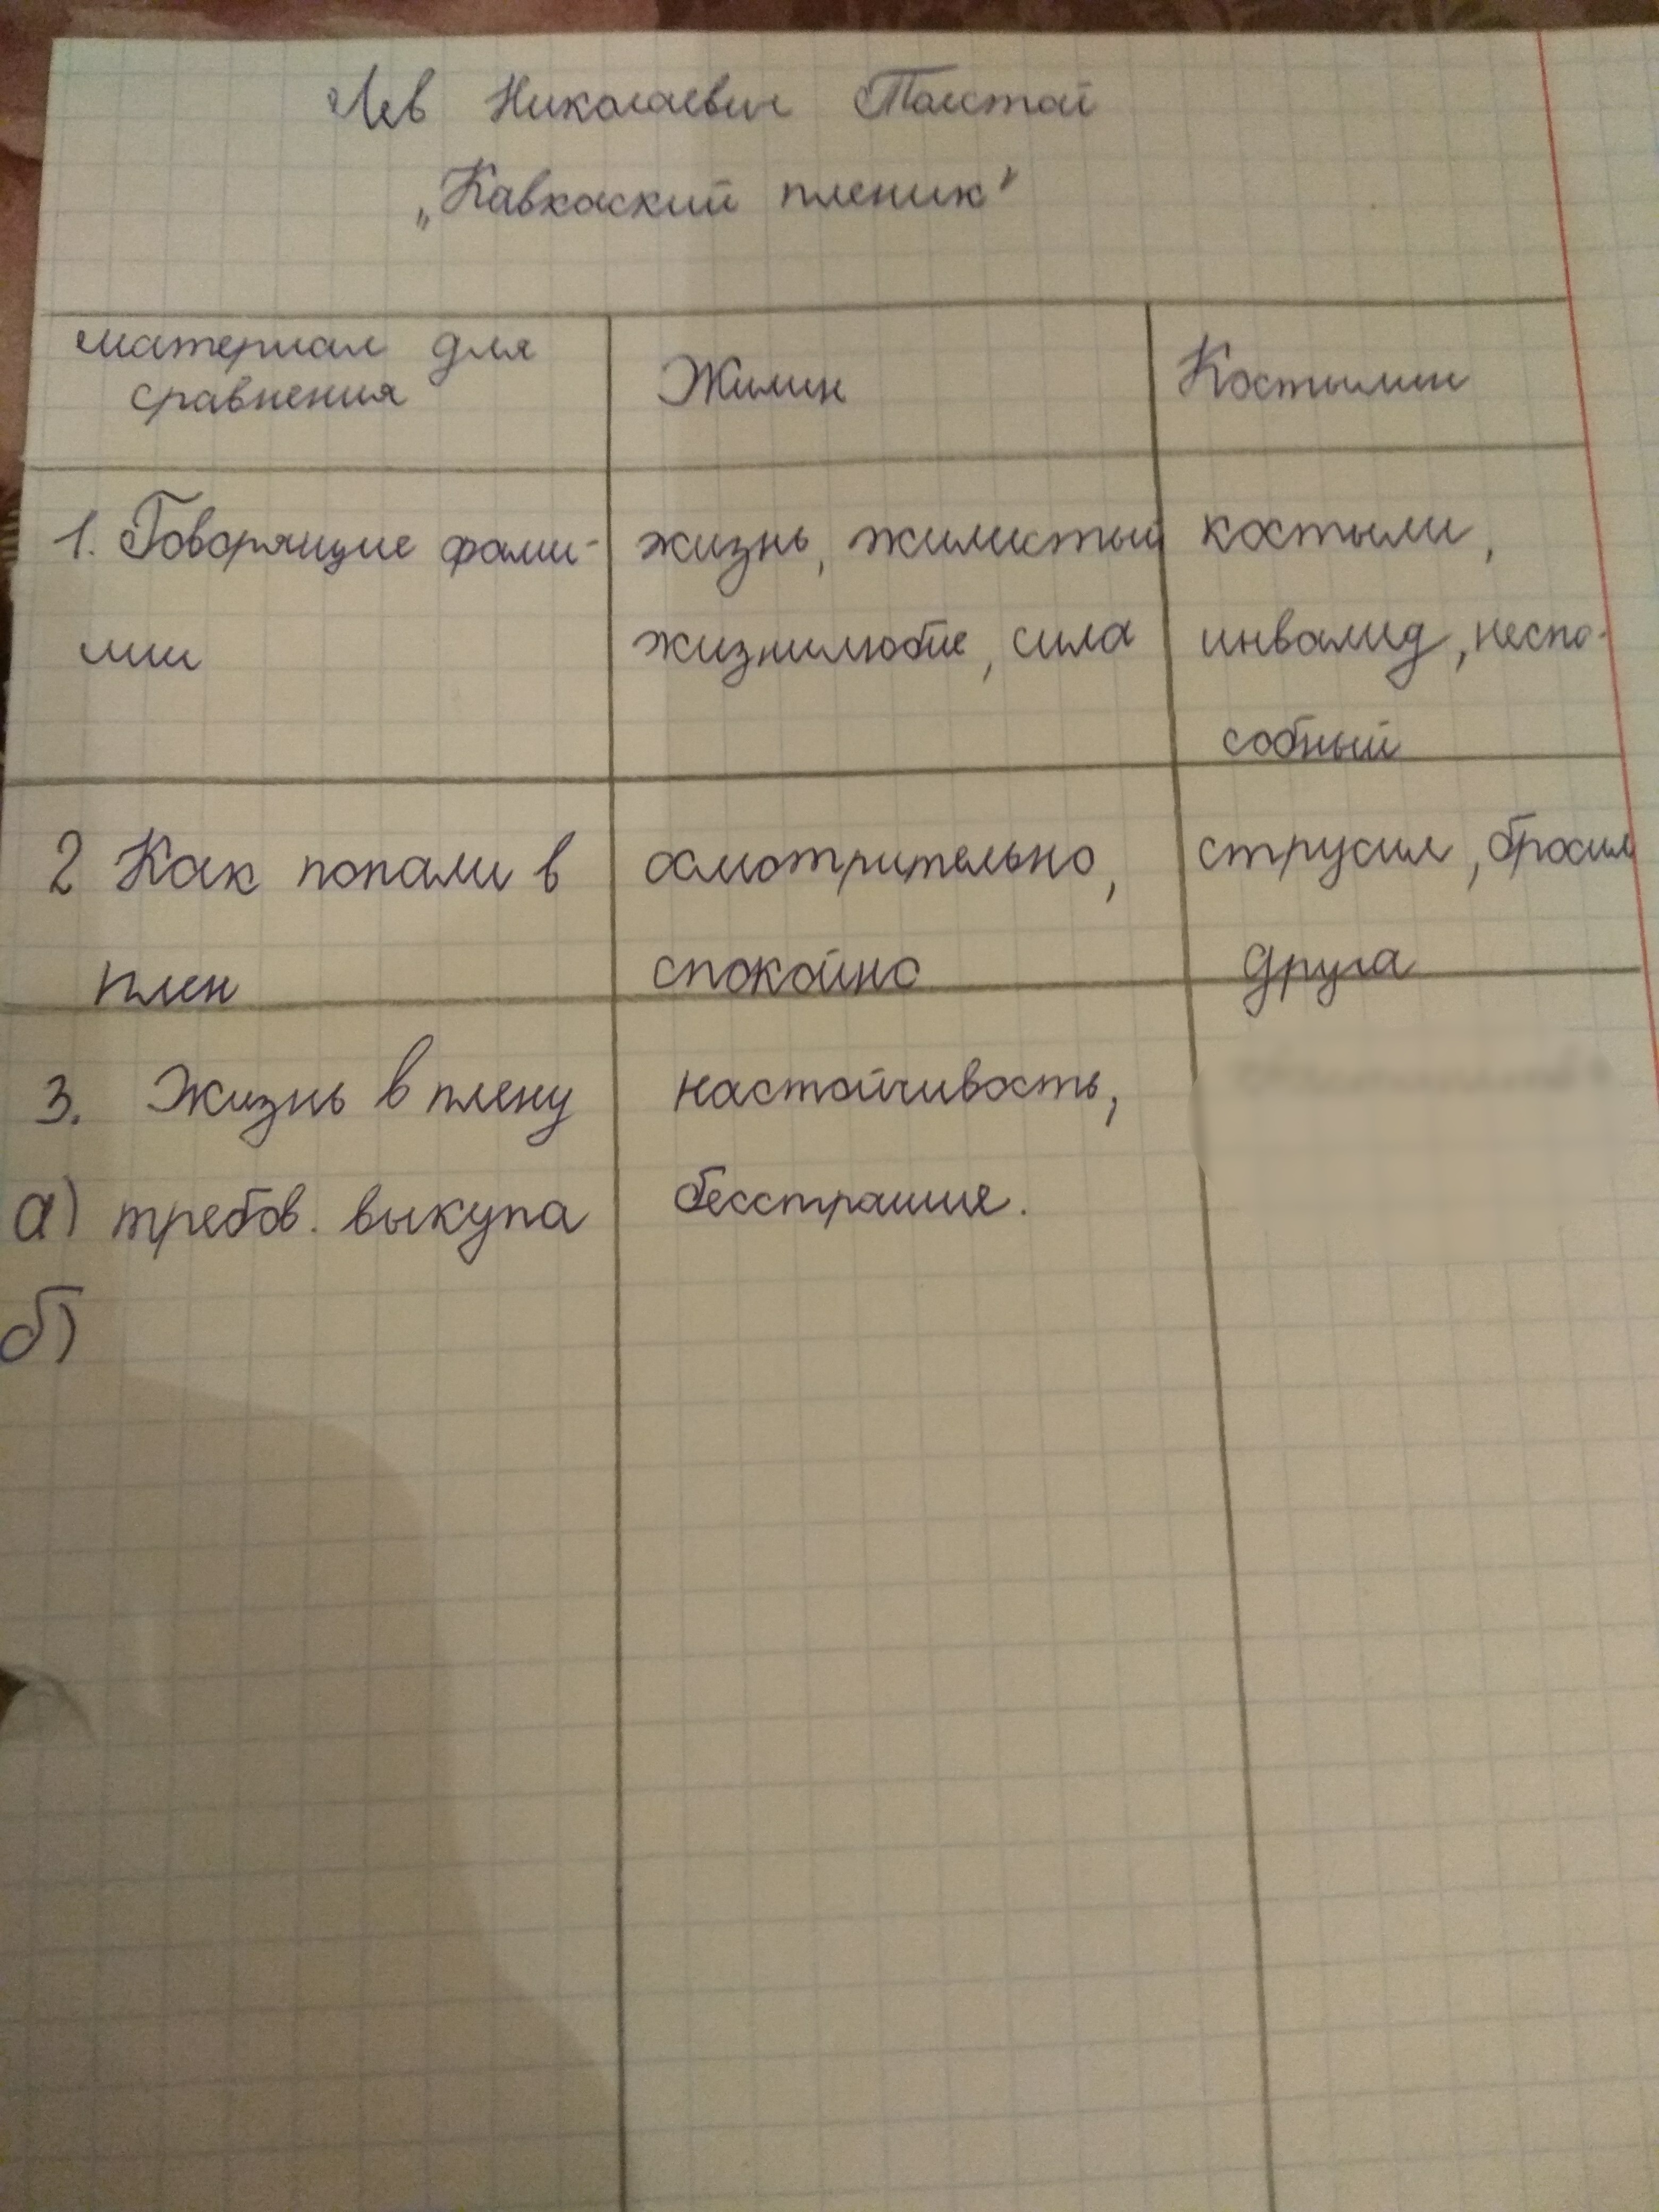 Лев Николаевич Толстой
„Кавкаский пленик"
материал для сравнения
Жилин
Костылин
1. Говорящие фами-
лии
жизнь, жилистый
жизнилюбие, сила
костыли,
инвалид, неспо-
собный
2 Как попали в
плен
осмотрительно,
спокойно
струсил, бросил
друга
3. Жизнь в плену
а) требов. выкупа
б)
настойчивость,
бесстрашие.